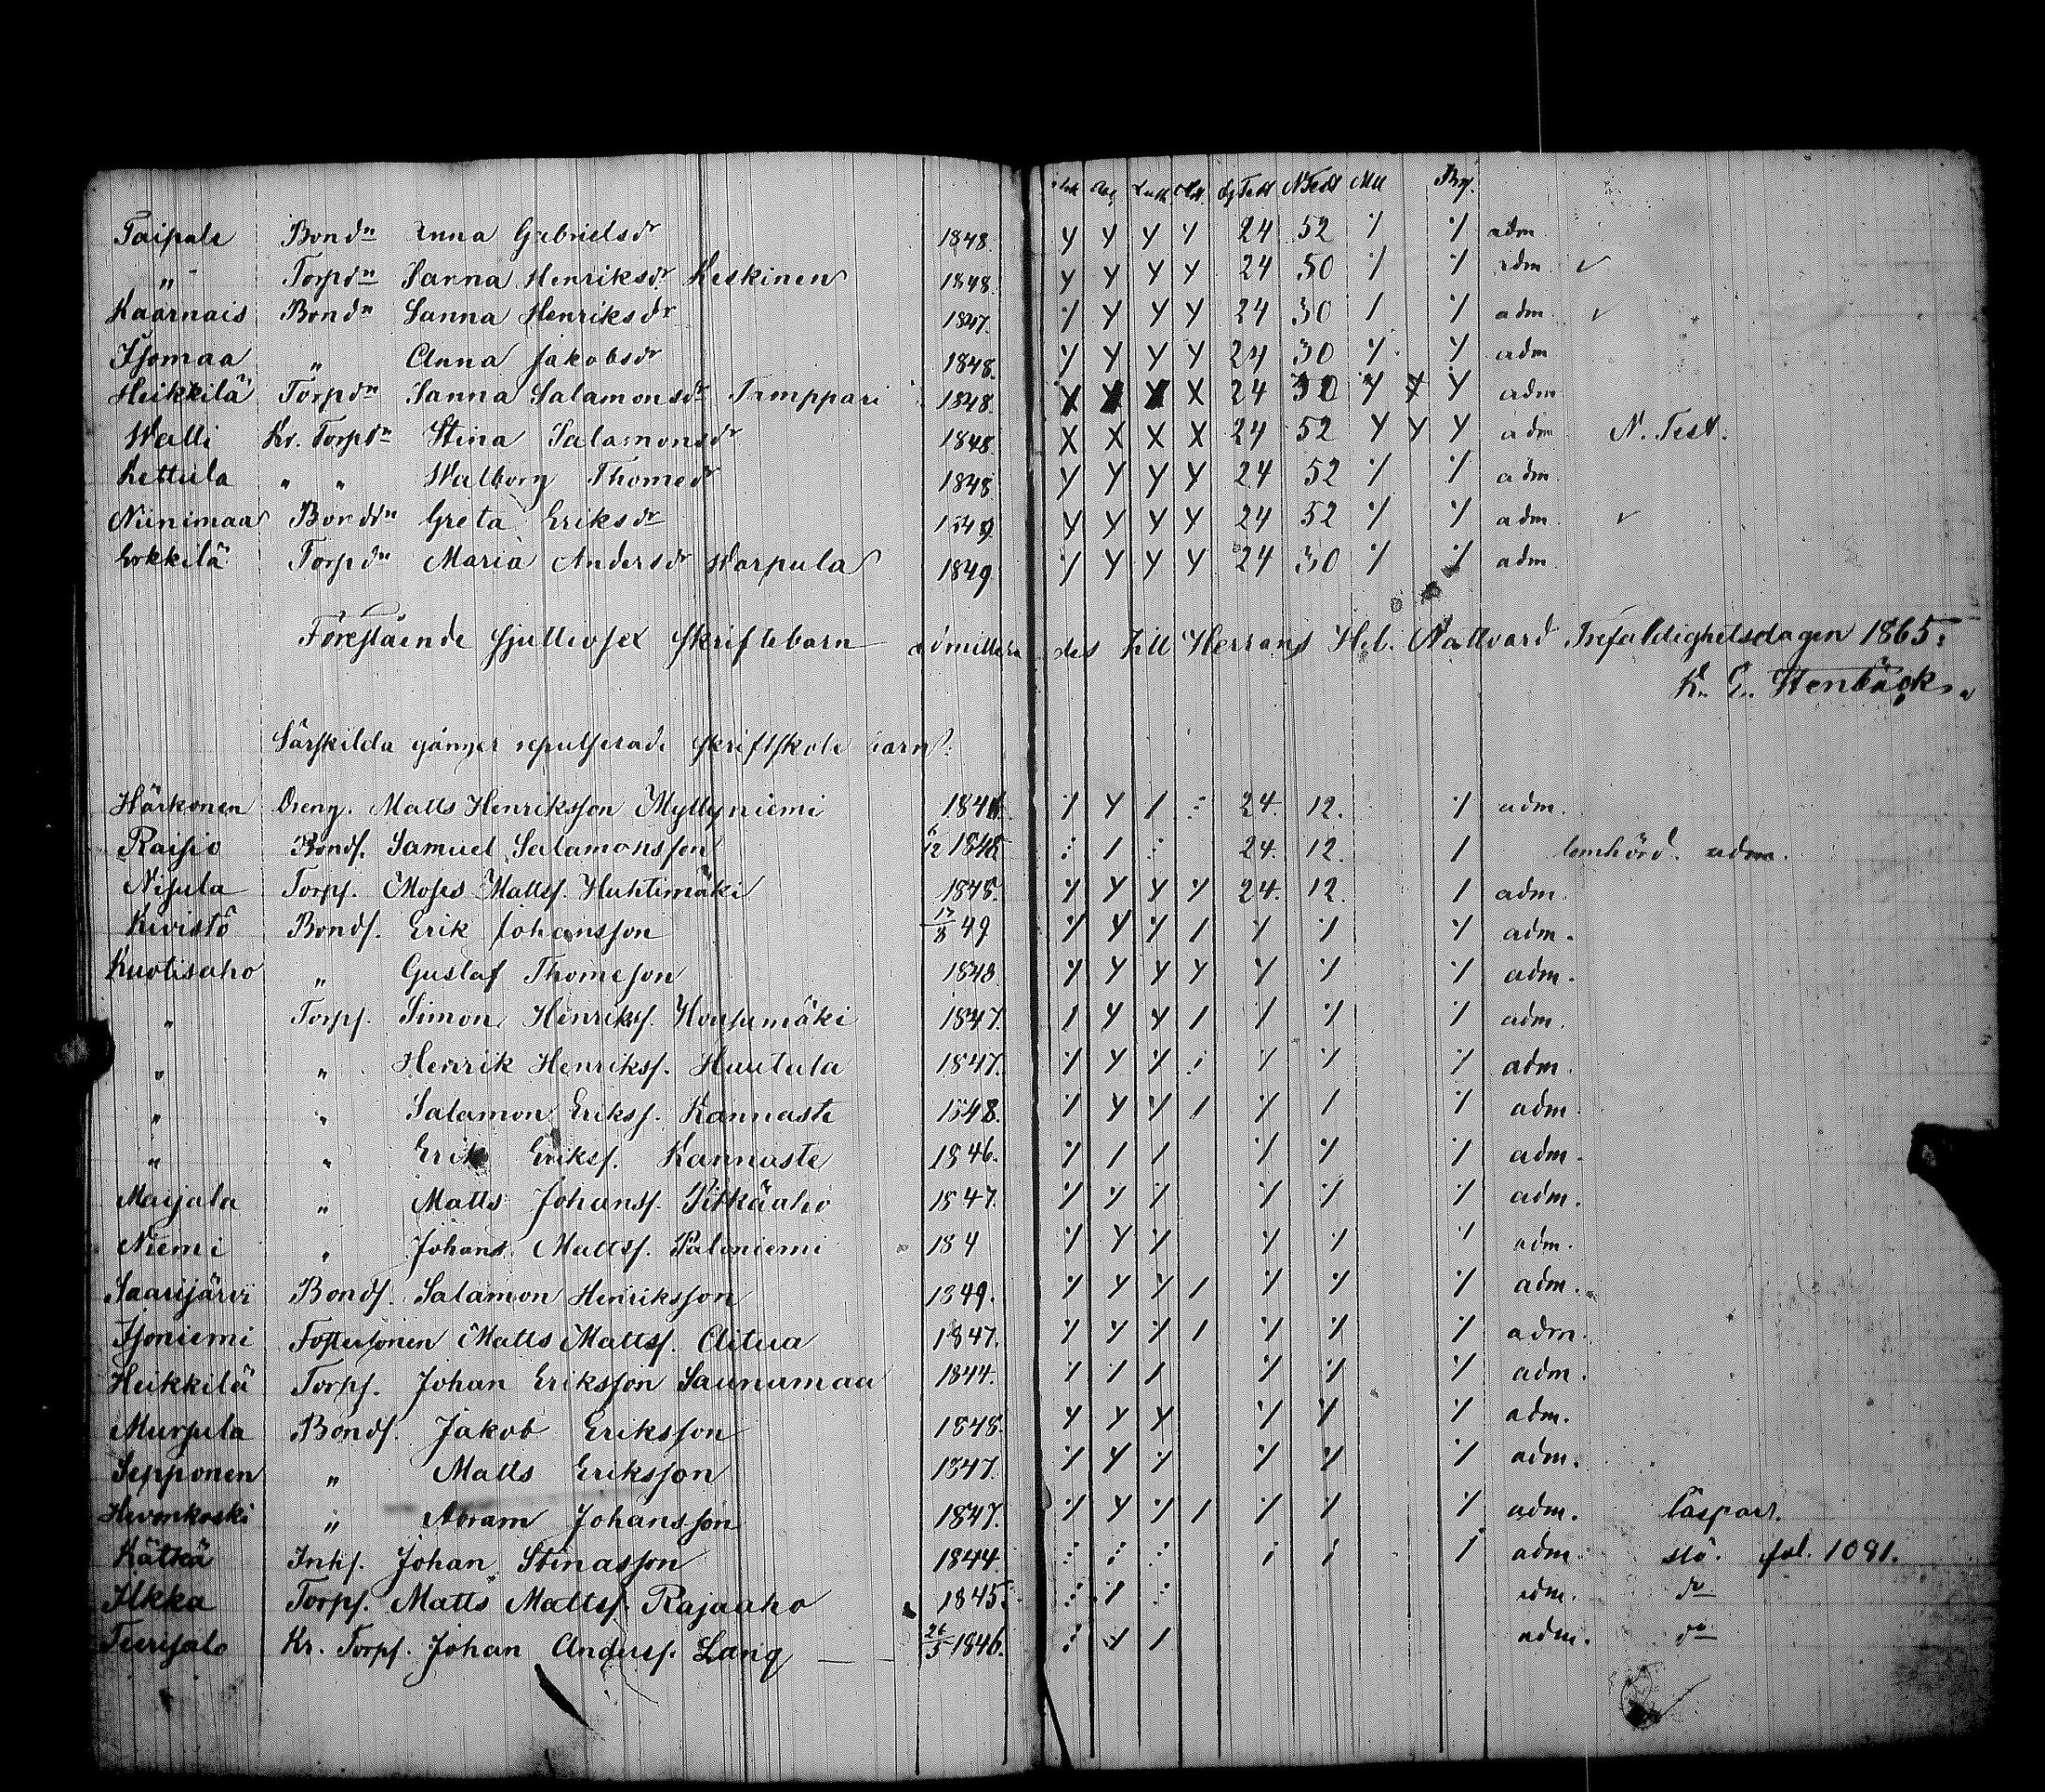 Luth. N Test Beg.
Taipale Bondn Anna Gabrielsdr 1848. Y Y Y Y 24 52 adm.
" Torpdn Sanna Henriksdr Keskinen 1848. Y Y Y Y 24 50 adm. ✓
Kaarnais Bondn Sanna Henriksdr 1847. Y Y Y 24 30 adm. ✓
Isomaa " Anna Jakobsdr 1848. Y Y Y 24 30 adm
Heikkilä Torpdn Sanna Salamonsdr Tamppari 1848. X X X X 24 30 Y Y Y adm
Walli Kr. Torpdn Stina Salamonsdr 1848. X X X X 24 52 Y Y Y adm N. Test.
Kettula " " Walborg Thomedr 1848. Y Y Y Y 24 52 adm.
Niinimaa Bonddn Greta Eriksdr 1849. Y Y Y Y 24 52 adm. ✓
Erkkilä Torpdn Maria Andersdr Warpula 1849. Y Y Y 24 30 adm.
Föreståendе sjuttiosex skriftebarn admitterades till Herrans Hel. Nattvard Trefaldighetsdagen 1865.
K. G. Stenbäck.
Särskilda gånger repulserade skriftskole barn.
Härkönen Dreng. Matts Henriksson Myllyniemi 24. 12. adm.
Raisio Bonds. Samuel Salamonsson 6/12 1848 24. 12. lomhörd. adm.
Nisula Torps. Moses Matts. Huhtimäki 1848. 24. 12. adm.
Kivistö Bonds. Erik Johansson 17/8 49 adm.
Kuotisaho " Gustaf Thomeson 1848. adm.
" Torps. Simon Henriks. Housumäki 1847. adm.
" " Henrik Henriks. Huutula 1847. adm.
" " Salamon Eriks. Kannaste 1848. adm.
" " Erik Eriks. Kannaste 1846. adm.
Marjala " Matts Johans. Pitkäaho 1847. adm.
Niemi " Johans Matts. Paloniemi 184 adm.
Saarijärvi Bonds. Salamon Henriksson 1849. adm.
Isoniemi Fostersonen Matts Matts. Alitua 1847. adm.
Heikkilä Torps. Johan Eriksson Saunamaa 1844. adm.
Mursula Bonds. Jakob Eriksson 1848. adm.
Sepponen " Matts Eriksson 1847. adm.
Hirvonkoski " Abram Johansson 1847. adm.
Kätkä Inhs. Johan Stinasson 1844. adm. slö. fol. 1081.
Ilkka Torps. Matts Matts. Rajaaho 1845. adm. do
Teerisalo Kr. Torps. Johan Anders. Lang 26/5 1846. adm. do